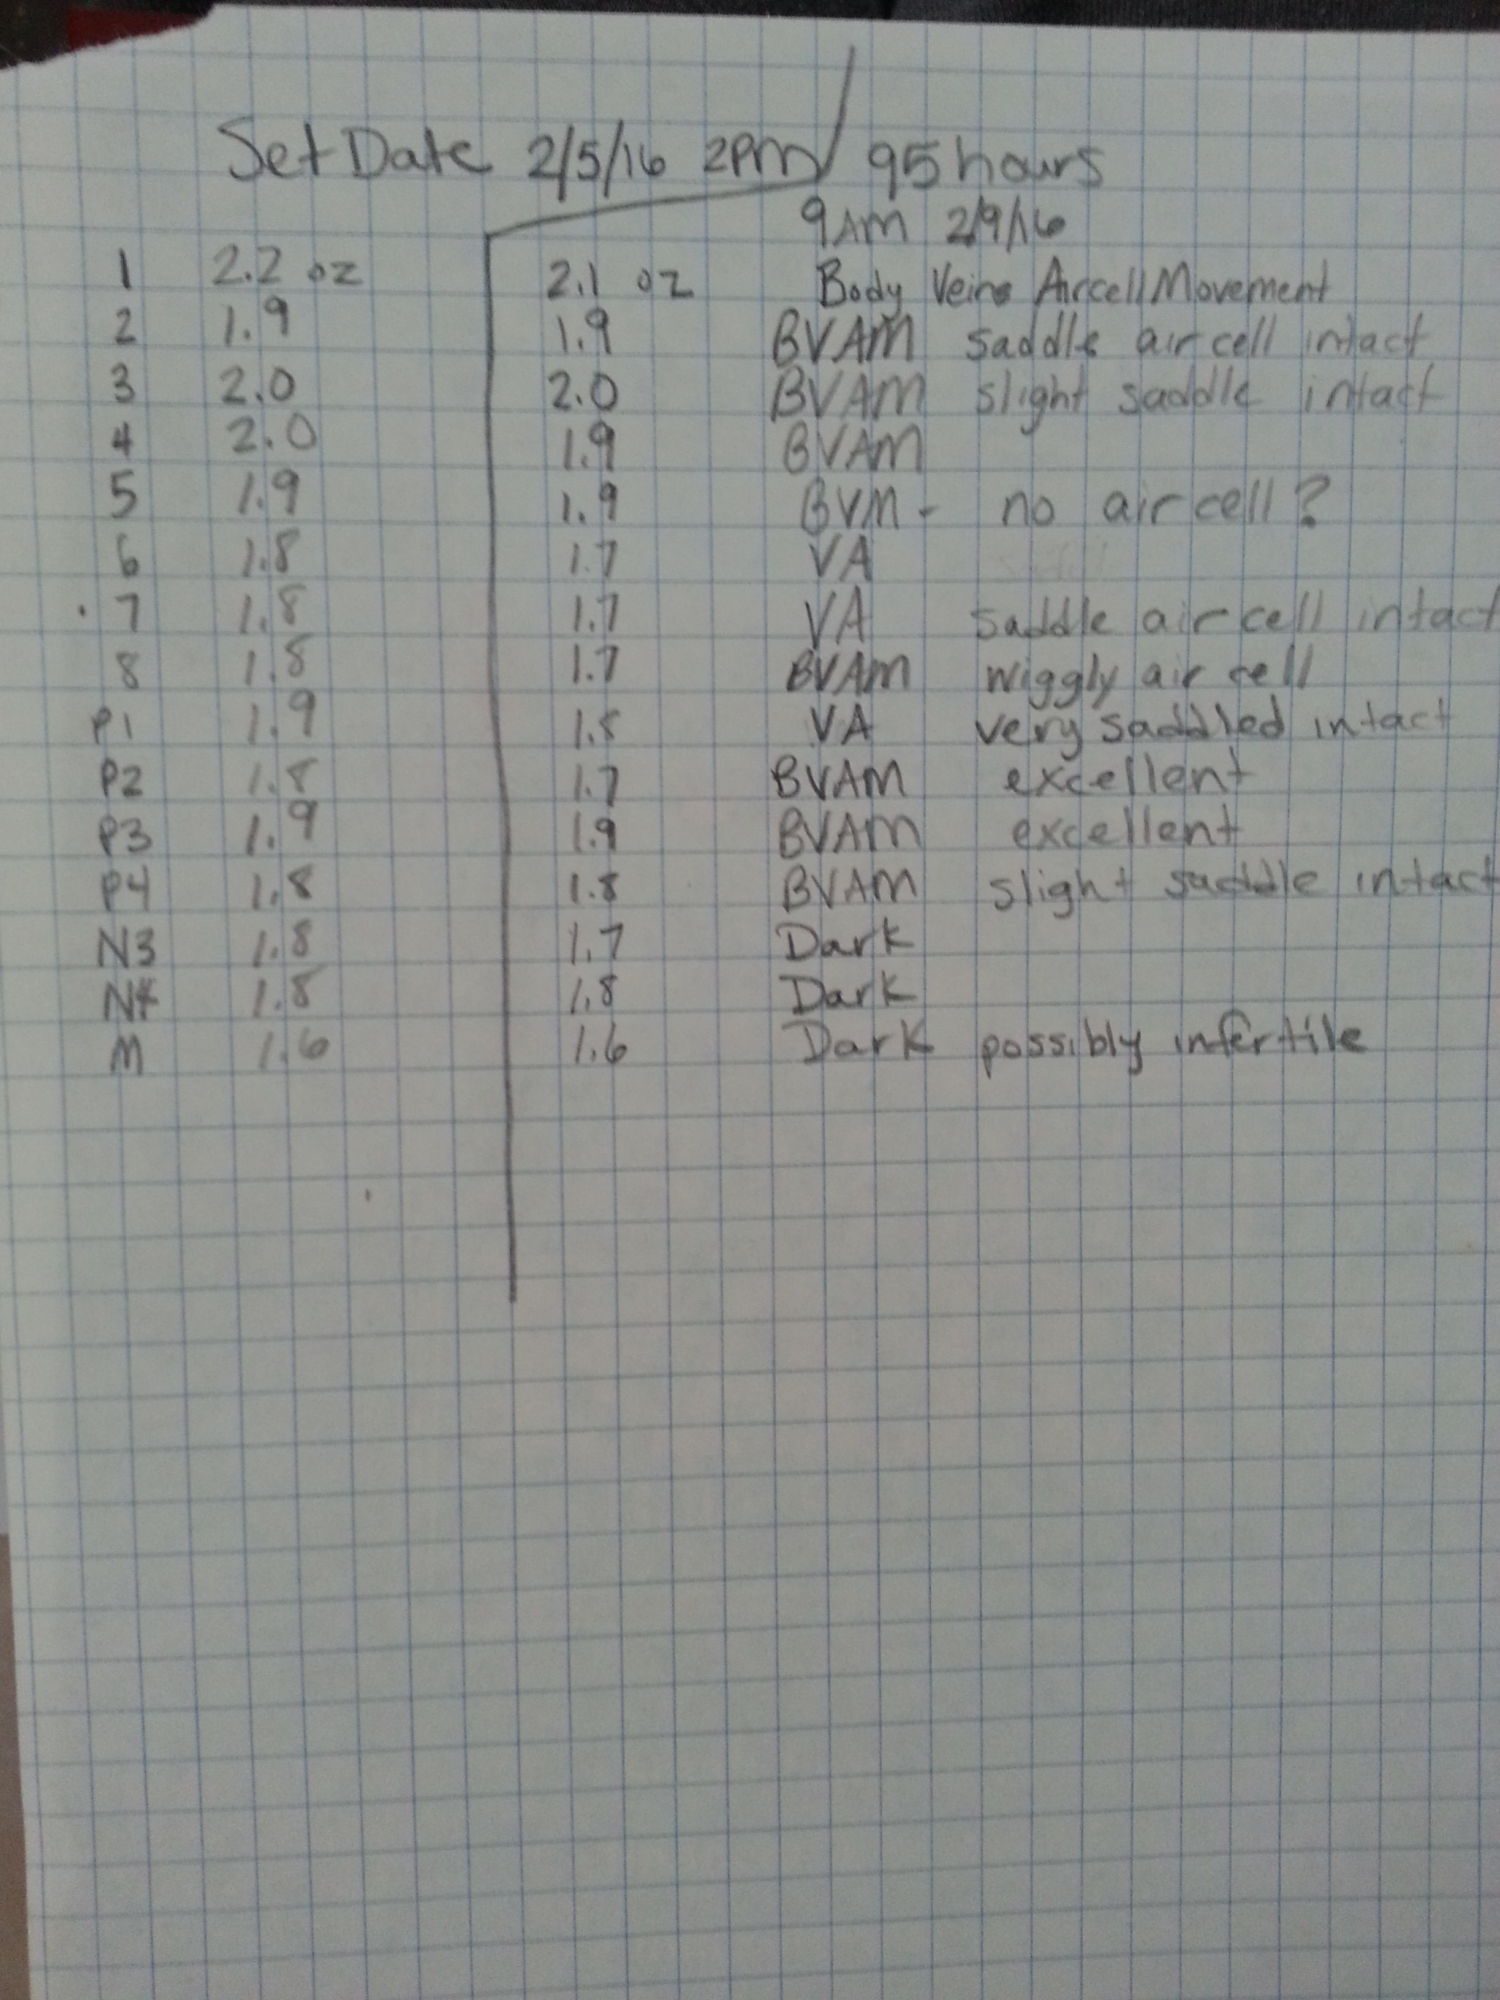 Set Date 2/5/16 2PM / 95 hours
9AM 2/9/16
1 2.2 oz 2.1 oz Body Veins Aircell Movement
2 1.9 1.9 BVAM saddle air cell intact
3 2.0 2.0 BVAM slight saddle intact
4 2.0 1.9 BVAM
5 1.9 1.9 BVM - no air cell?
6 1.8 1.7 VA
7 1.8 1.7 VA saddle air cell intact
8 1.8 1.7 BVAM wiggly air cell
P1 1.9 1.8 VA very saddled intact
P2 1.8 1.7 BVAM excellent
P3 1.9 1.9 BVAM excellent
P4 1.8 1.8 BVAM slight saddle intact
N3 1.8 1.7 Dark
1.8 1.8 Dark
M 1.6 1.6 Dark possibly infertile